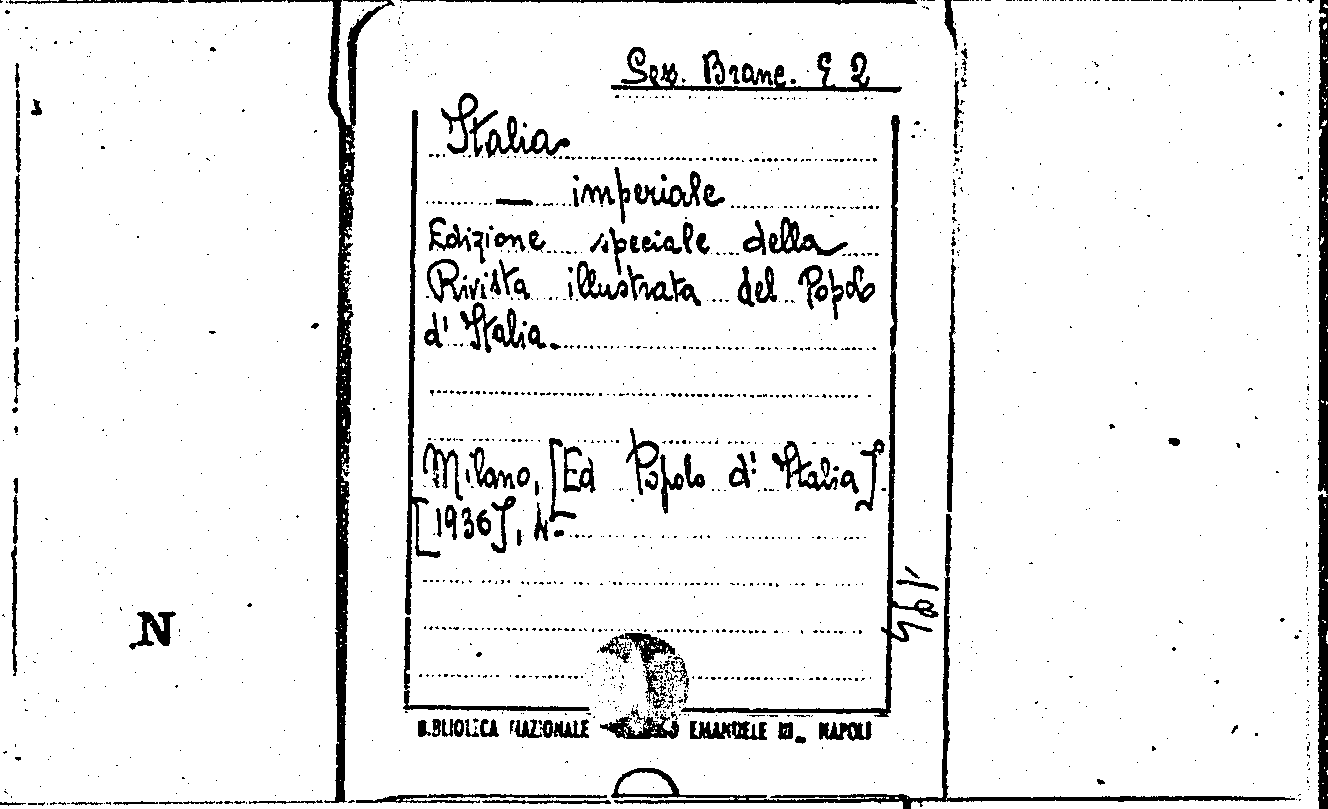 Sez. Branc. E 2
Italia
— imperiale
Edizione speciale della
Rivista illustrata del Popolo
d'Italia.
Milano, [Ed Popolo d'Italia]
[1936], 4°
N
BIBLIOTECA NAZIONALE EMANUELE III - NAPOLI